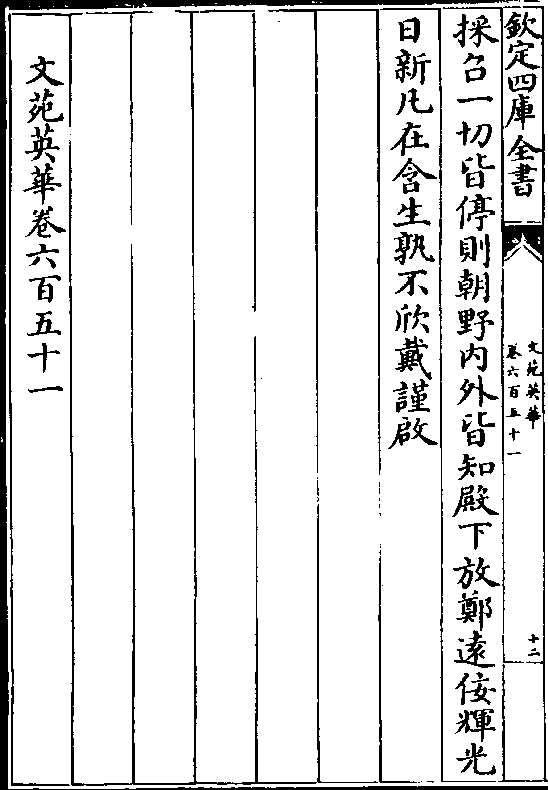 欽定四庫全書
文苑英華
卷六百五十一
十二
採召一切皆停則朝野内外皆知殿下放鄭遠佞輝光
日新凡在含生孰不欣戴謹啟
文苑英華卷六百五十一